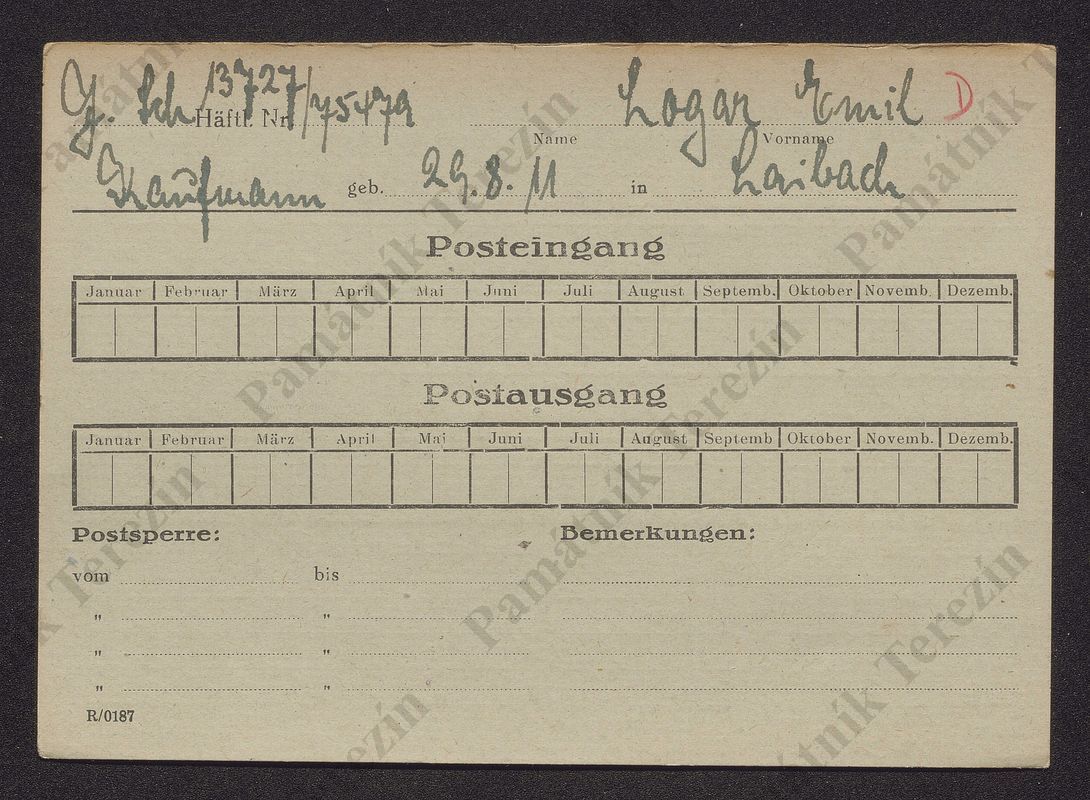 J. Sch 13727/75479 Logar Emil D
Häftl. Nr. Name Vorname
Kaufmann geb. 29.8.11 in Laibach
Posteingang
Januar Februar März April Mai Juni Juli August Septemb. Oktober Novemb. Dezemb.
Postausgang
Januar Februar März April Mai Juni Juli August Septemb Oktober Novemb. Dezemb.
Postsperre: Bemerkungen:
vom bis
" "
" "
" "
R/0187
Památník Terezín